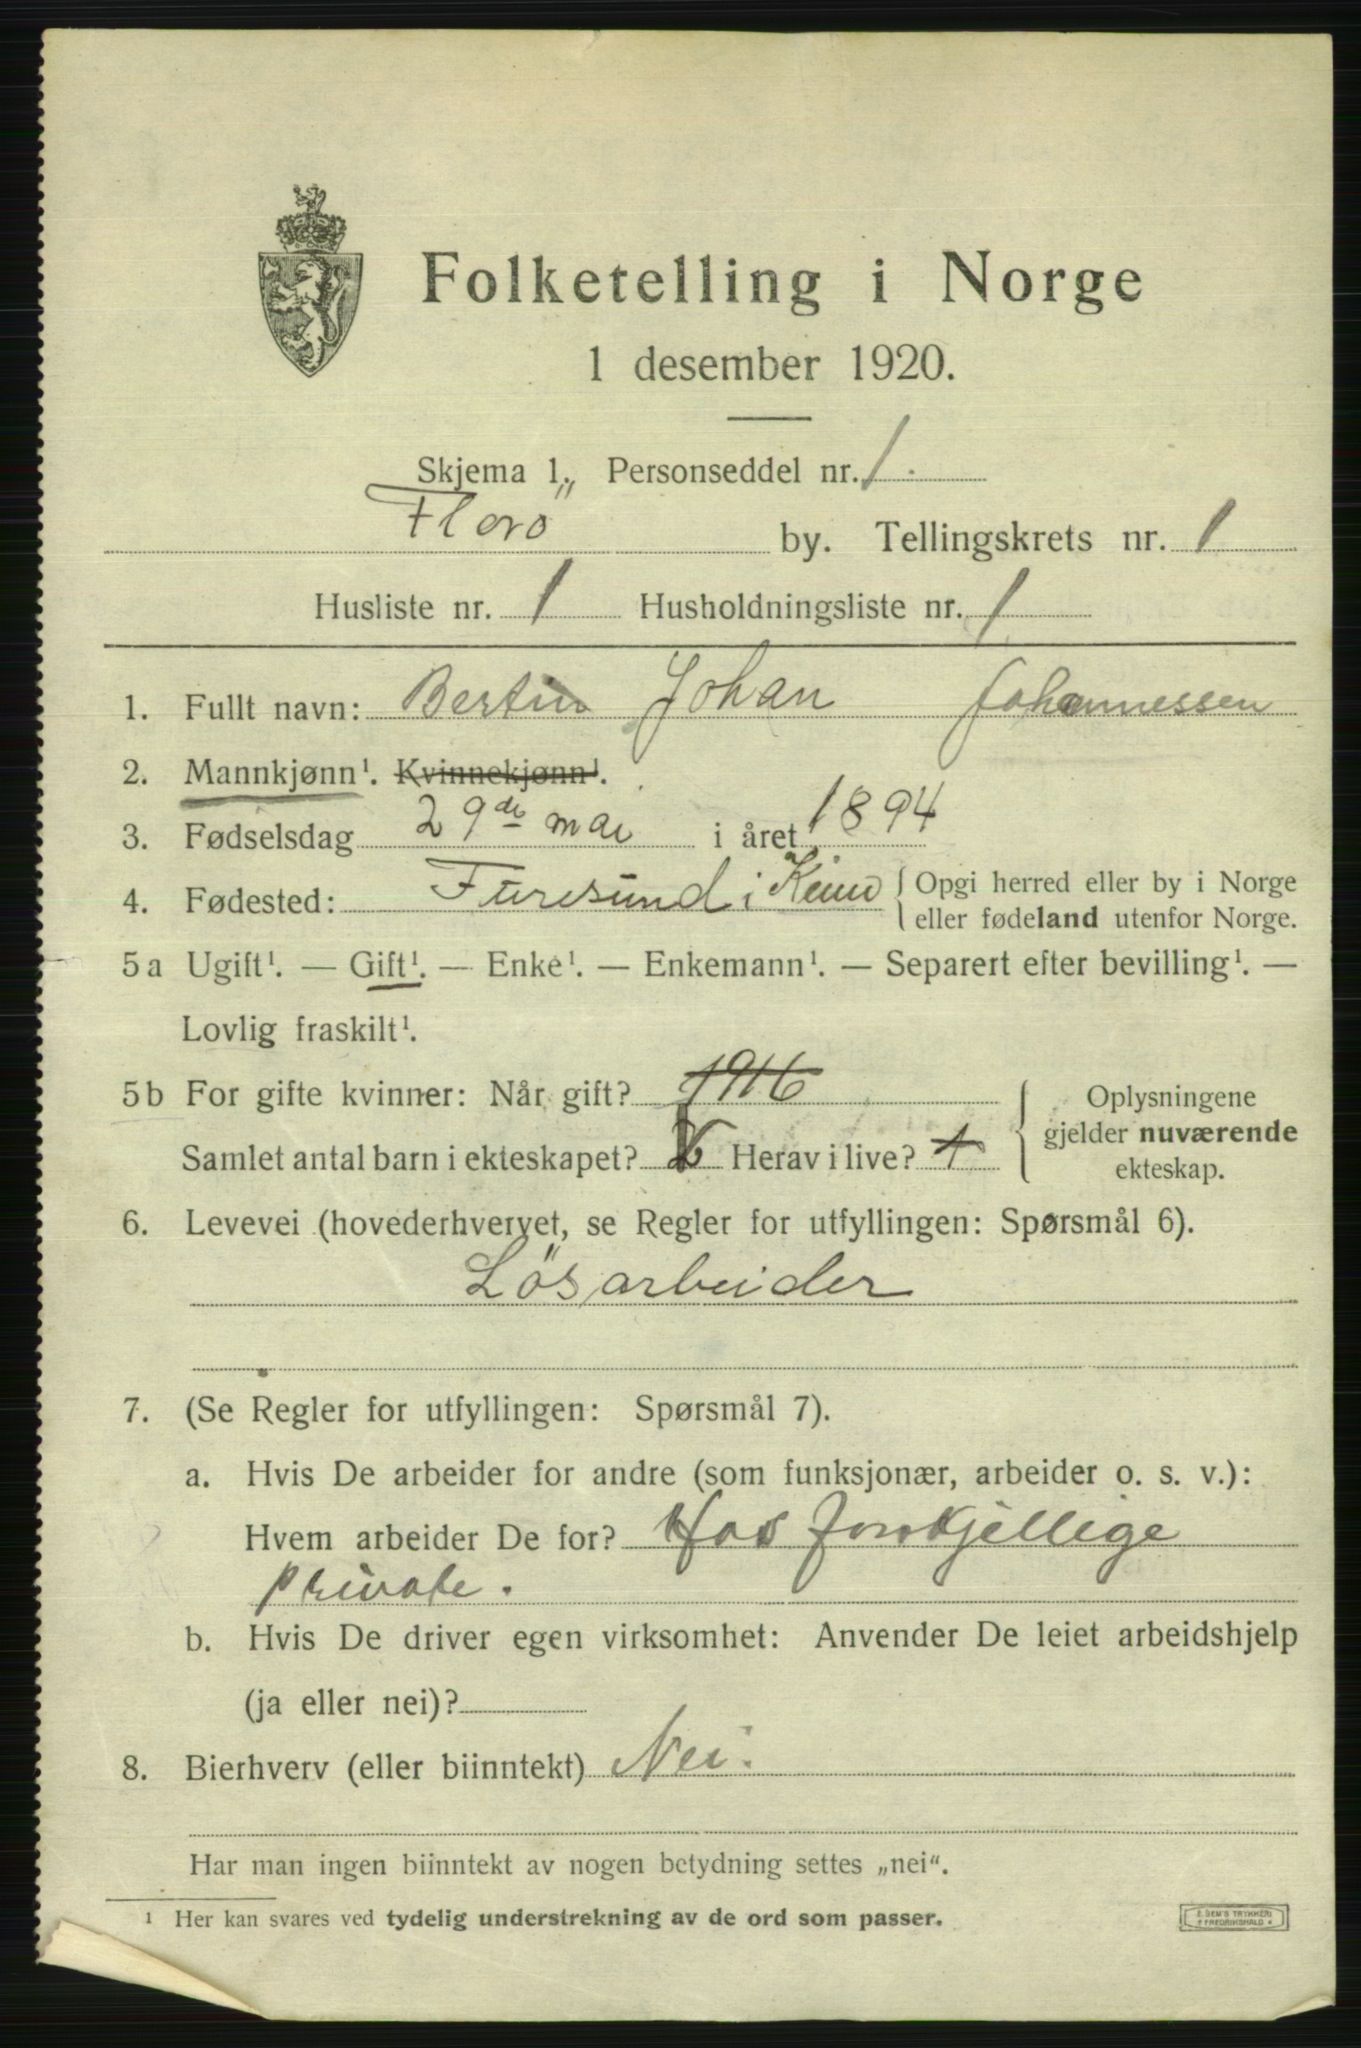 Folketelling i Norge
1 desember 1920.
Skjema 1. Personseddel nr. 1.
Florö by. Tellingskrets nr. 1
Husliste nr. 1 Husholdningsliste nr. 1
1. Fullt navn: Bertin Johan Johannessen
2. Mannkjønn¹. Kvinnekjønn¹.
3. Fødselsdag 29de mai i året 1894
4. Fødested: Furesund i Kinn { Opgi herred eller by i Norge
eller fødeland utenfor Norge.
5a Ugift¹. — Gift¹. — Enke¹. — Enkemann¹. — Separert efter bevilling¹. —
Lovlig fraskilt¹.
5b For gifte kvinner: Når gift? 1916
Samlet antal barn i ekteskapet? Herav i live? 1
} Oplysningene
gjelder nuværende
ekteskap.
6. Levevei (hovederhvervet, se Regler for utfyllingen: Spørsmål 6).
Lösarbeider
7. (Se Regler for utfyllingen: Spørsmål 7).
a. Hvis De arbeider for andre (som funksjonær, arbeider o. s. v.):
Hvem arbeider De for? Hos forskjellige
private.
b. Hvis De driver egen virksomhet: Anvender De leiet arbeidshjelp
(ja eller nei)?
8. Bierhverv (eller biinntekt) Nei.
Har man ingen biinntekt av nogen betydning settes „nei“.
¹ Her kan svares ved tydelig understrekning av de ord som passer.
E. SEM'S TRYKKERI
FREDRIKSHALD